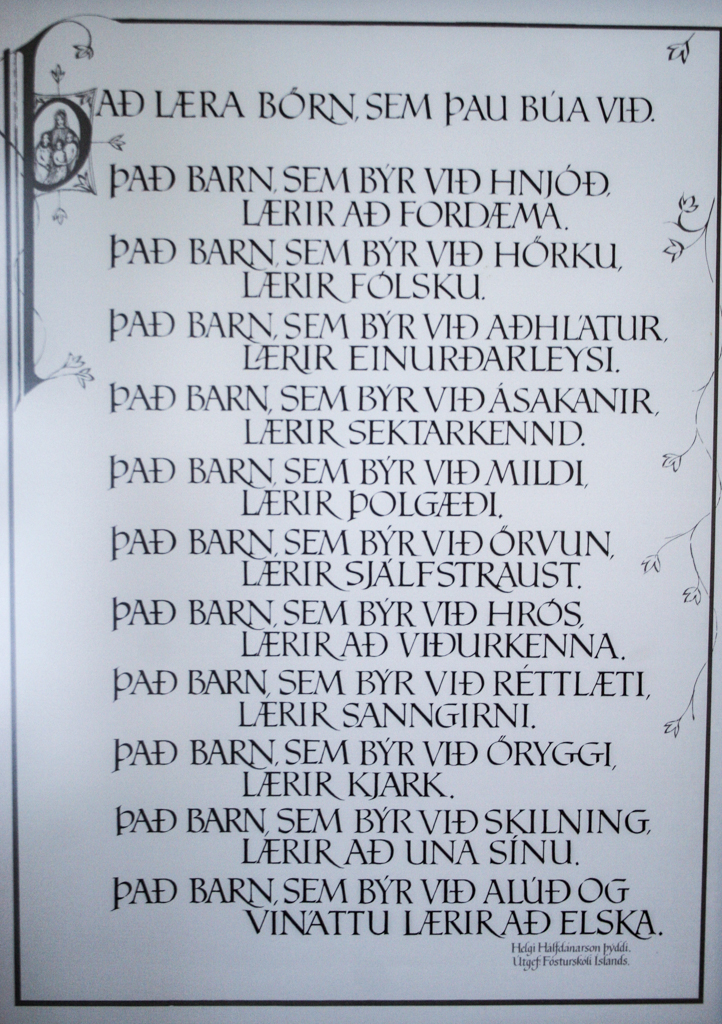 ÞAÐ LÆRA BÖRN, SEM ÞAU BÚA VIÐ.
ÞAÐ BARN, SEM BÝR VIÐ HNJÓÐ,
LÆRIR AÐ FORDÆMA.
ÞAÐ BARN, SEM BÝR VIÐ HÖRKU,
LÆRIR FÓLSKU.
ÞAÐ BARN, SEM BÝR VIÐ AÐHLÁTUR,
LÆRIR EINURÐARLEYSI.
ÞAÐ BARN, SEM BÝR VIÐ ÁSAKANIR,
LÆRIR SEKTARKENND.
ÞAÐ BARN, SEM BÝR VIÐ MILDI,
LÆRIR ÞOLGÆÐI.
ÞAÐ BARN, SEM BÝR VIÐ ÖRVUN,
LÆRIR SJÁLFSTRAUST.
ÞAÐ BARN, SEM BÝR VIÐ HRÓS,
LÆRIR AÐ VIÐURKENNA.
ÞAÐ BARN, SEM BÝR VIÐ RÉTTLÆTI,
LÆRIR SANNGIRNI.
ÞAÐ BARN, SEM BÝR VIÐ ÖRYGGI,
LÆRIR KJARK.
ÞAÐ BARN, SEM BÝR VIÐ SKILNING,
LÆRIR AÐ UNA SÍNU.
ÞAÐ BARN, SEM BÝR VIÐ ALÚÐ OG
VINÁTTU LÆRIR AÐ ELSKA.
Helgi Hálfdánarson þýddi.
Útgef: Fósturskóli Íslands.